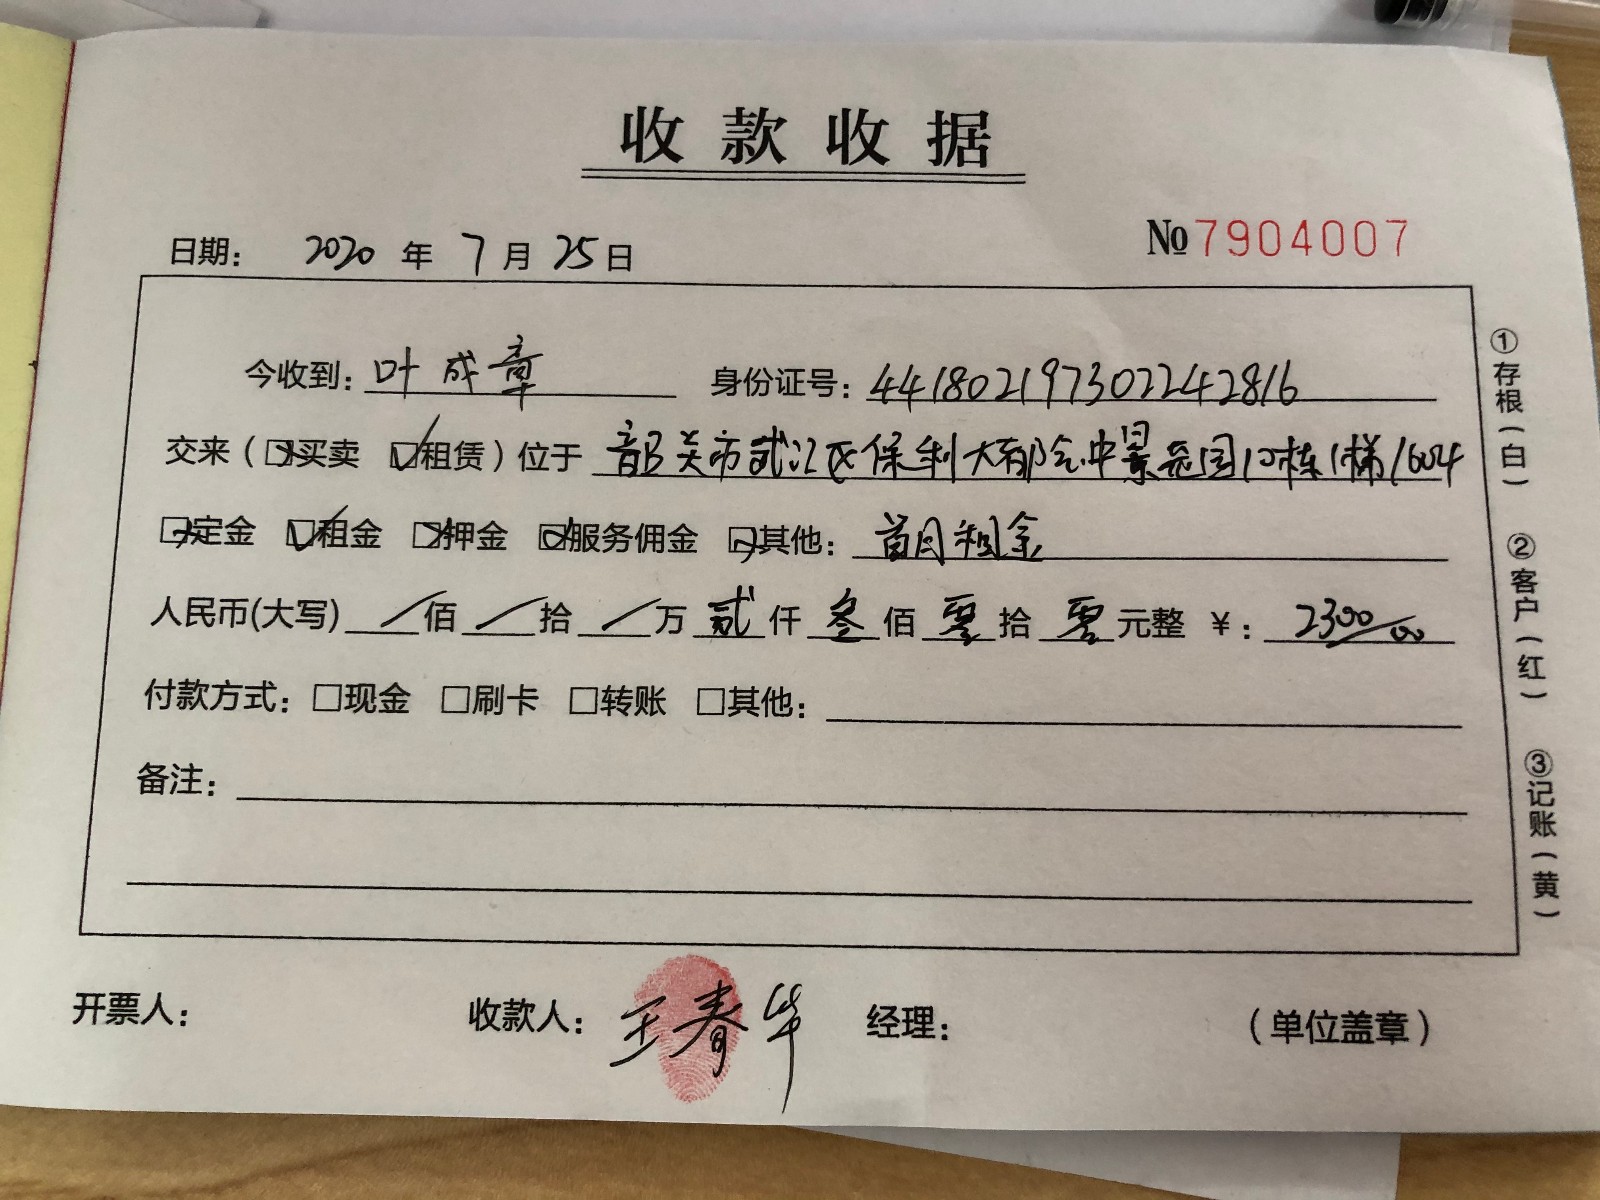 收款收据
日期： 2020 年 7 月 25 日 №7904007
今收到：叶成章 身份证号：441802197302242816
交来（☒买卖 ☑租赁）位于 韶关市武江区保利大都会中景花园12栋1梯1604
☒定金 ☑租金 ☒押金 ☒服务佣金 ☒其他：首月租金
人民币(大写) / 佰 / 拾 / 万 贰 仟 叁 佰 零 拾 零 元整 ¥：2300/00
付款方式：□现金 □刷卡 □转账 □其他：
备注：
开票人： 收款人：王春华 经理： （单位盖章）
①存根(白) ②客户(红) ③记账(黄)